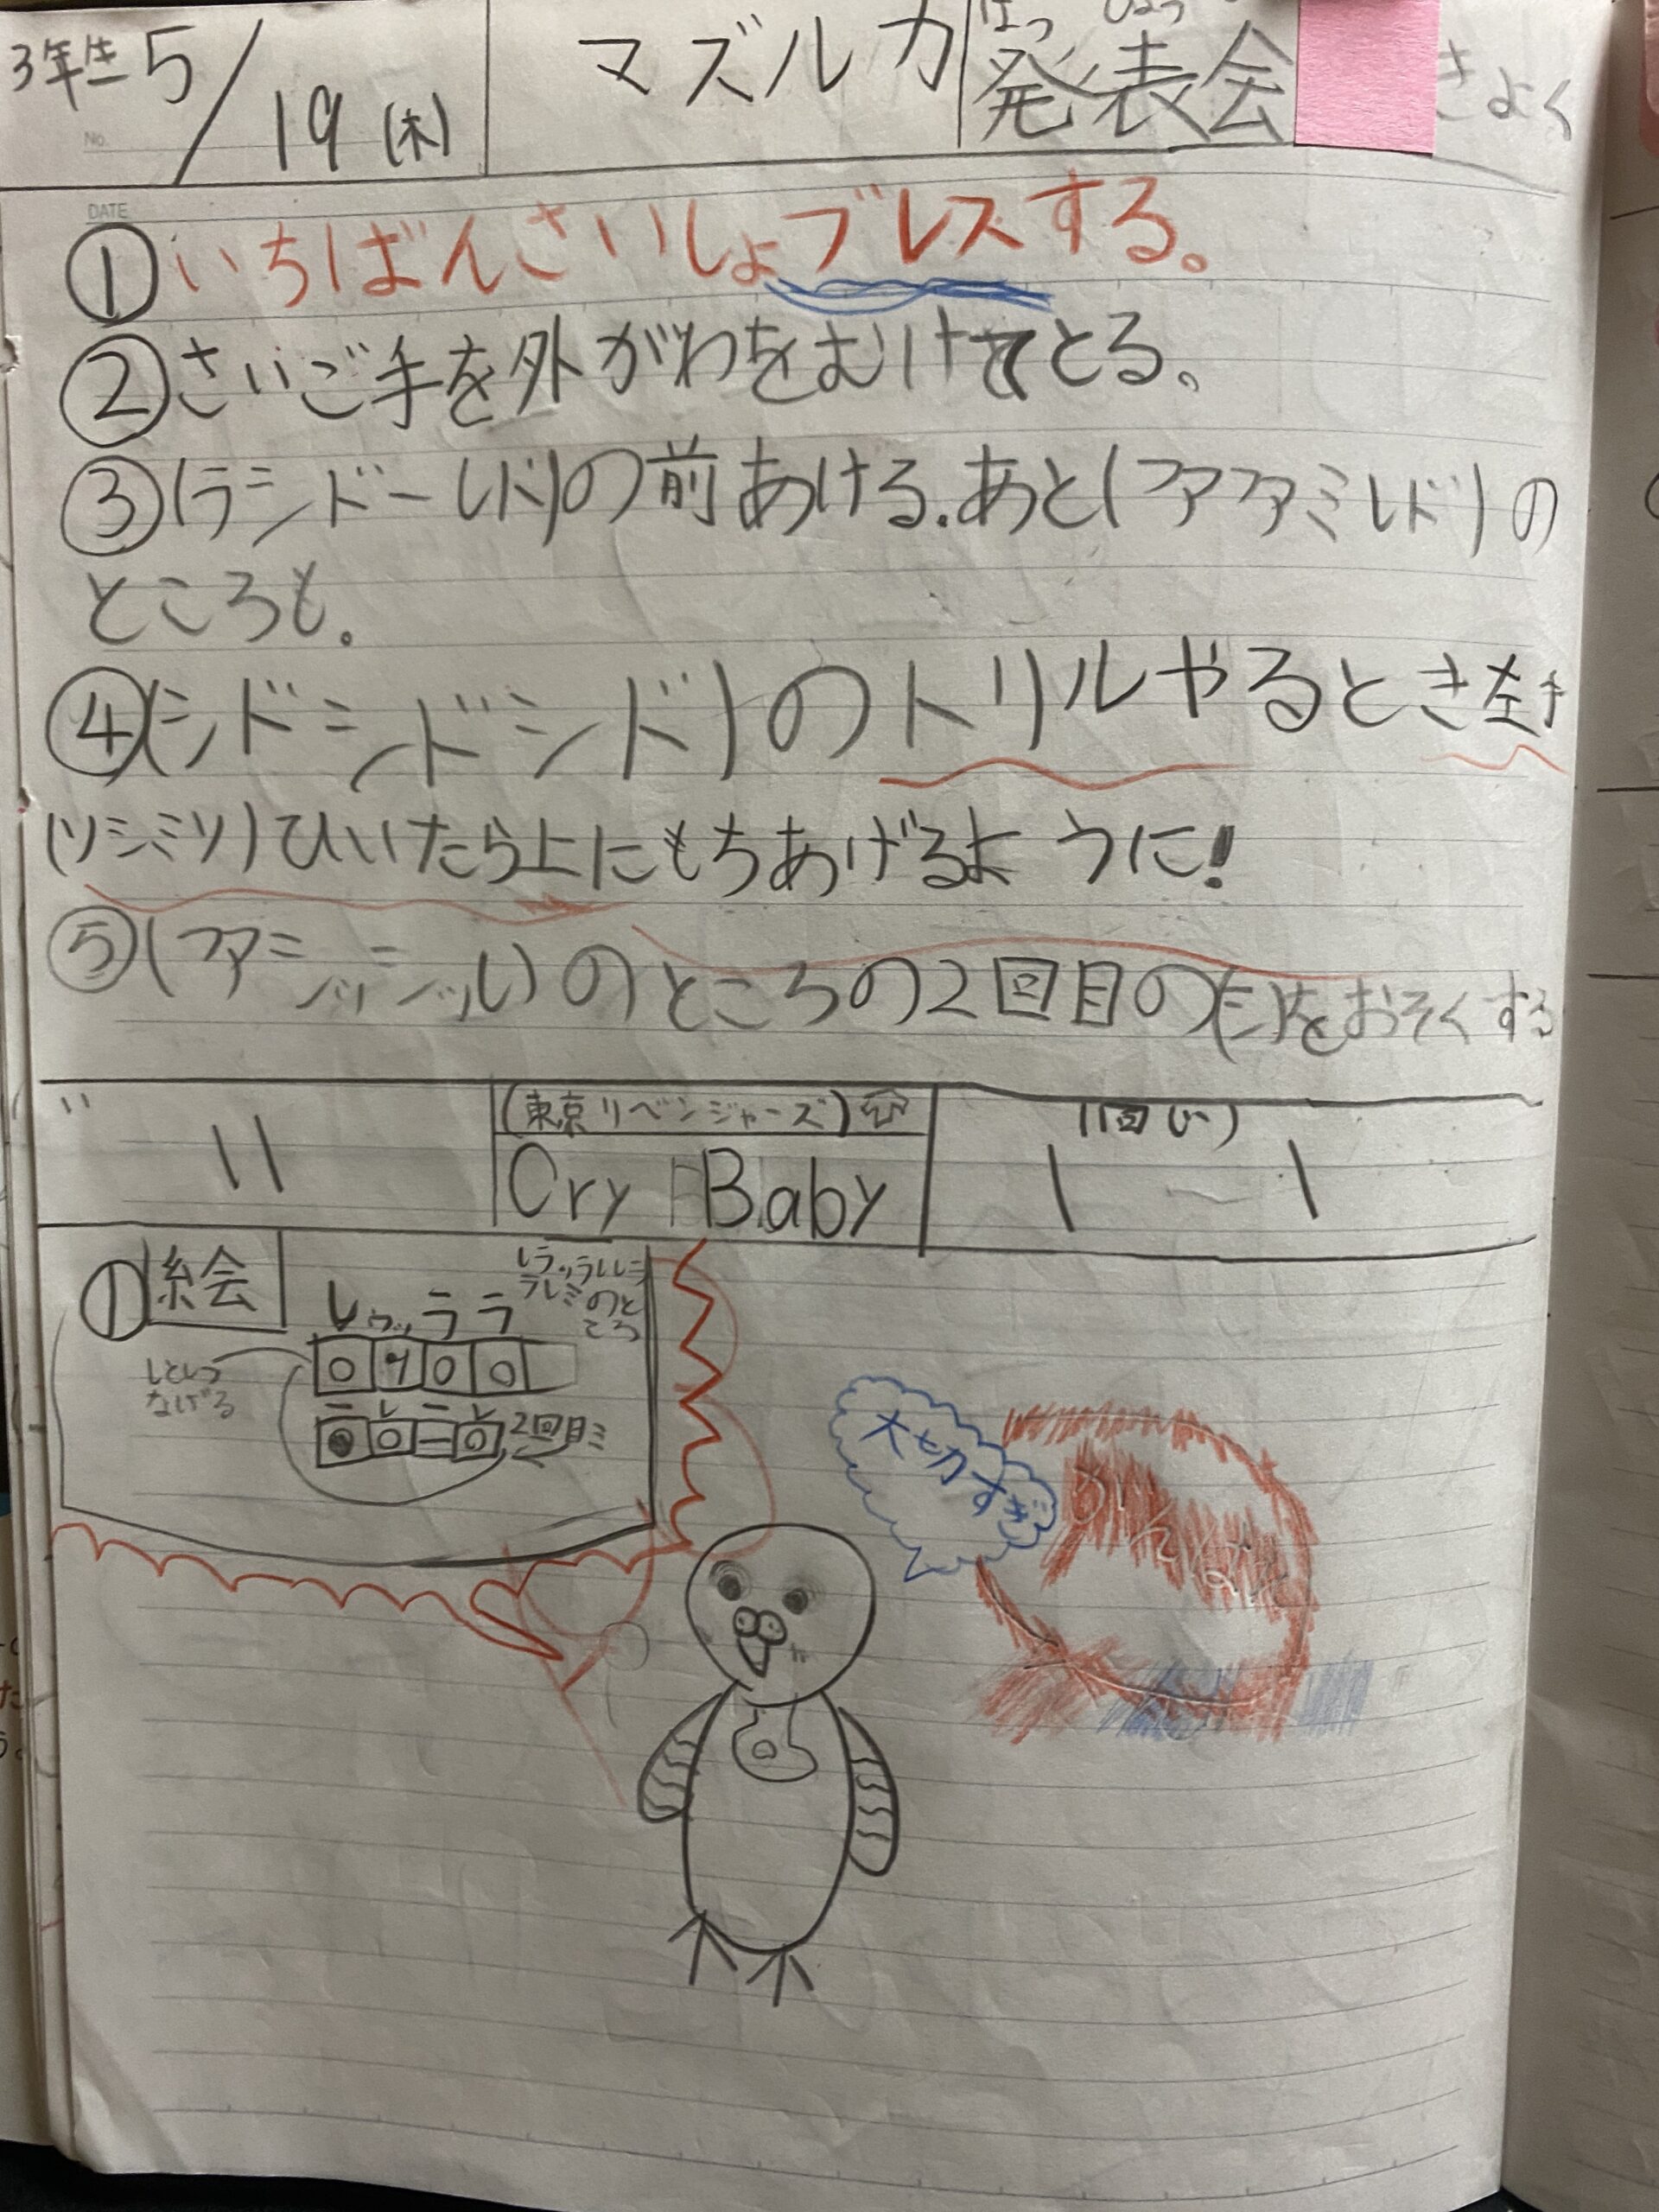 3年生 5/19(木) マズルカ 発表会 きょく
No.
DATE
①いちばんさいしょブレスする。
②さいご手を外がわをむけてとる。
③(ラシドーレド)の前あける.あと(ファファミレド)の
ところも。
④(シドシドシドシド)のトリルやるとき左手
(ソシミソ)ひいたら上にもちあげるように!
のところの2回目の をおそくする
(東京リベンジャーズ)
Cry Baby
①絵会
レ ラ ラ
のと
ころ
2回目ミ
大切すぎ